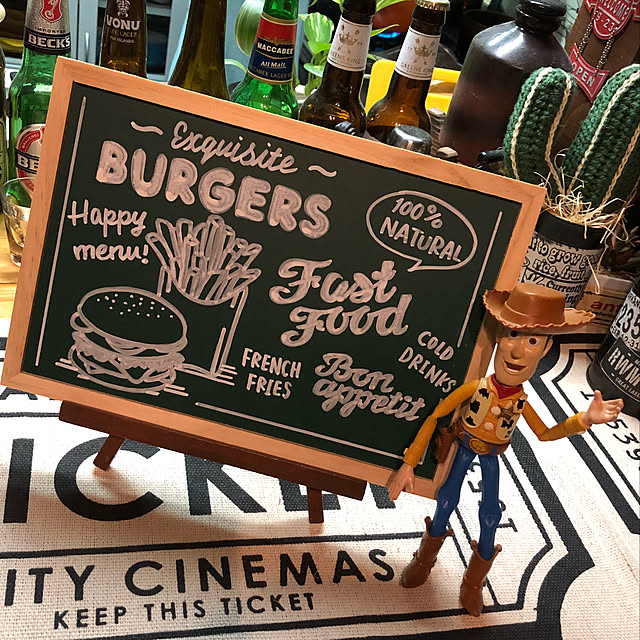 BECK'S
VONU
MACCABEE
All Malt
Exquisite
BURGERS
Happy
menu!
100%
NATURAL
Fast
Food
COLD
DRINKS
FRENCH
FRIES
Bon
appetit
CITY CINEMAS
KEEP THIS TICKET